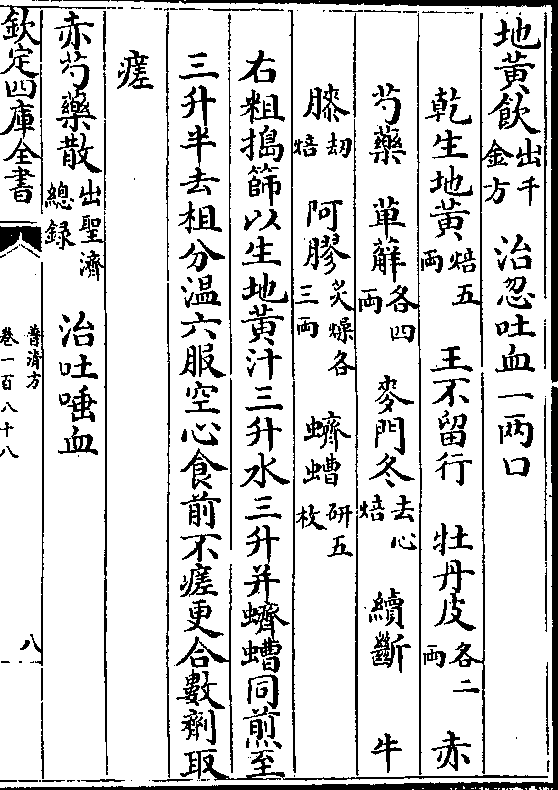 地黄飲出千金方 治忍吐血一两口
乾生地黄焙五两 王不留行 牡丹皮各二两 赤
芍藥 萆薢各四两 麥門冬去心焙 續斷 牛
膝切焙 阿膠炙燥各三两 蠐螬研五枚
右粗搗篩以生地黄汁三升水三升并蠐螬同煎至
三升半去柤分温六服空心食前不瘥更合數劑取
瘥
赤芍藥散出聖濟總録 治吐唾血
欽定四庫全書
普濟方
卷一百八十八
八